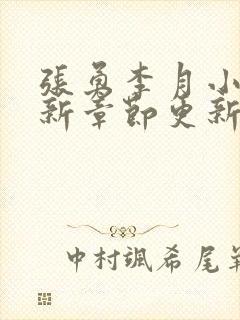 張勇李月小
新章節更新
中村颯希尾